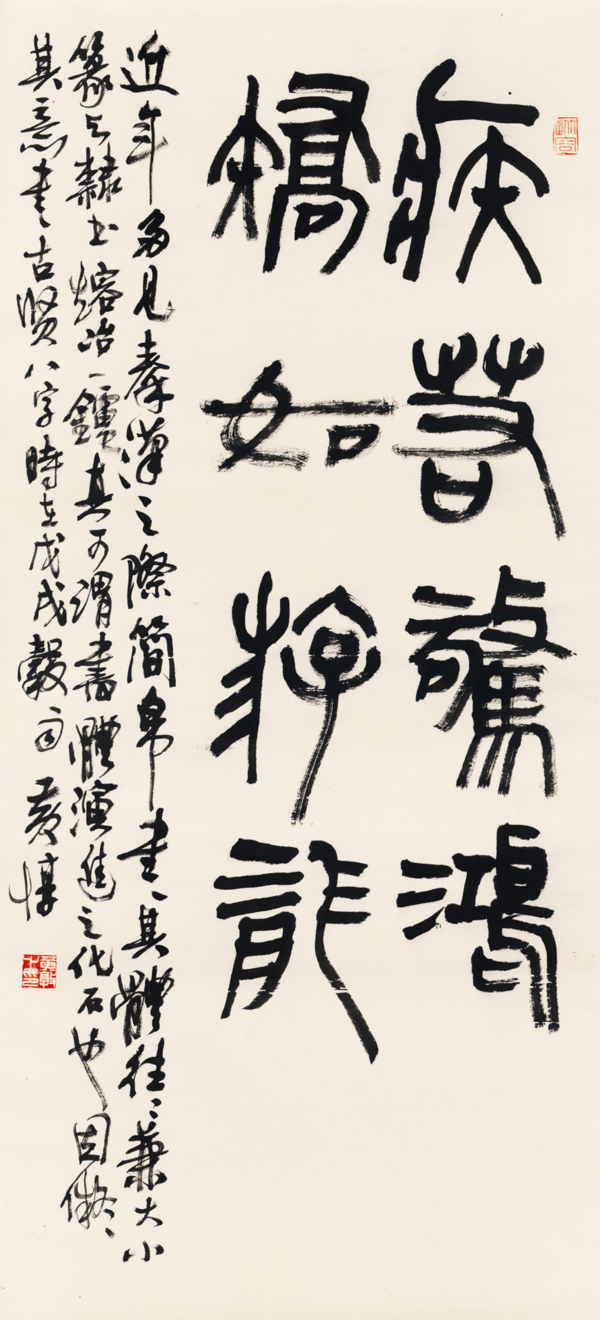 疾若驚鴻
矯如游龍
近年多見秦漢之際簡帛書其體往往兼大小
篆与隸書熔冶一鑪真可謂書體演進之化石也因擬
其意書古賢八字時在戊戌穀雨黃惇